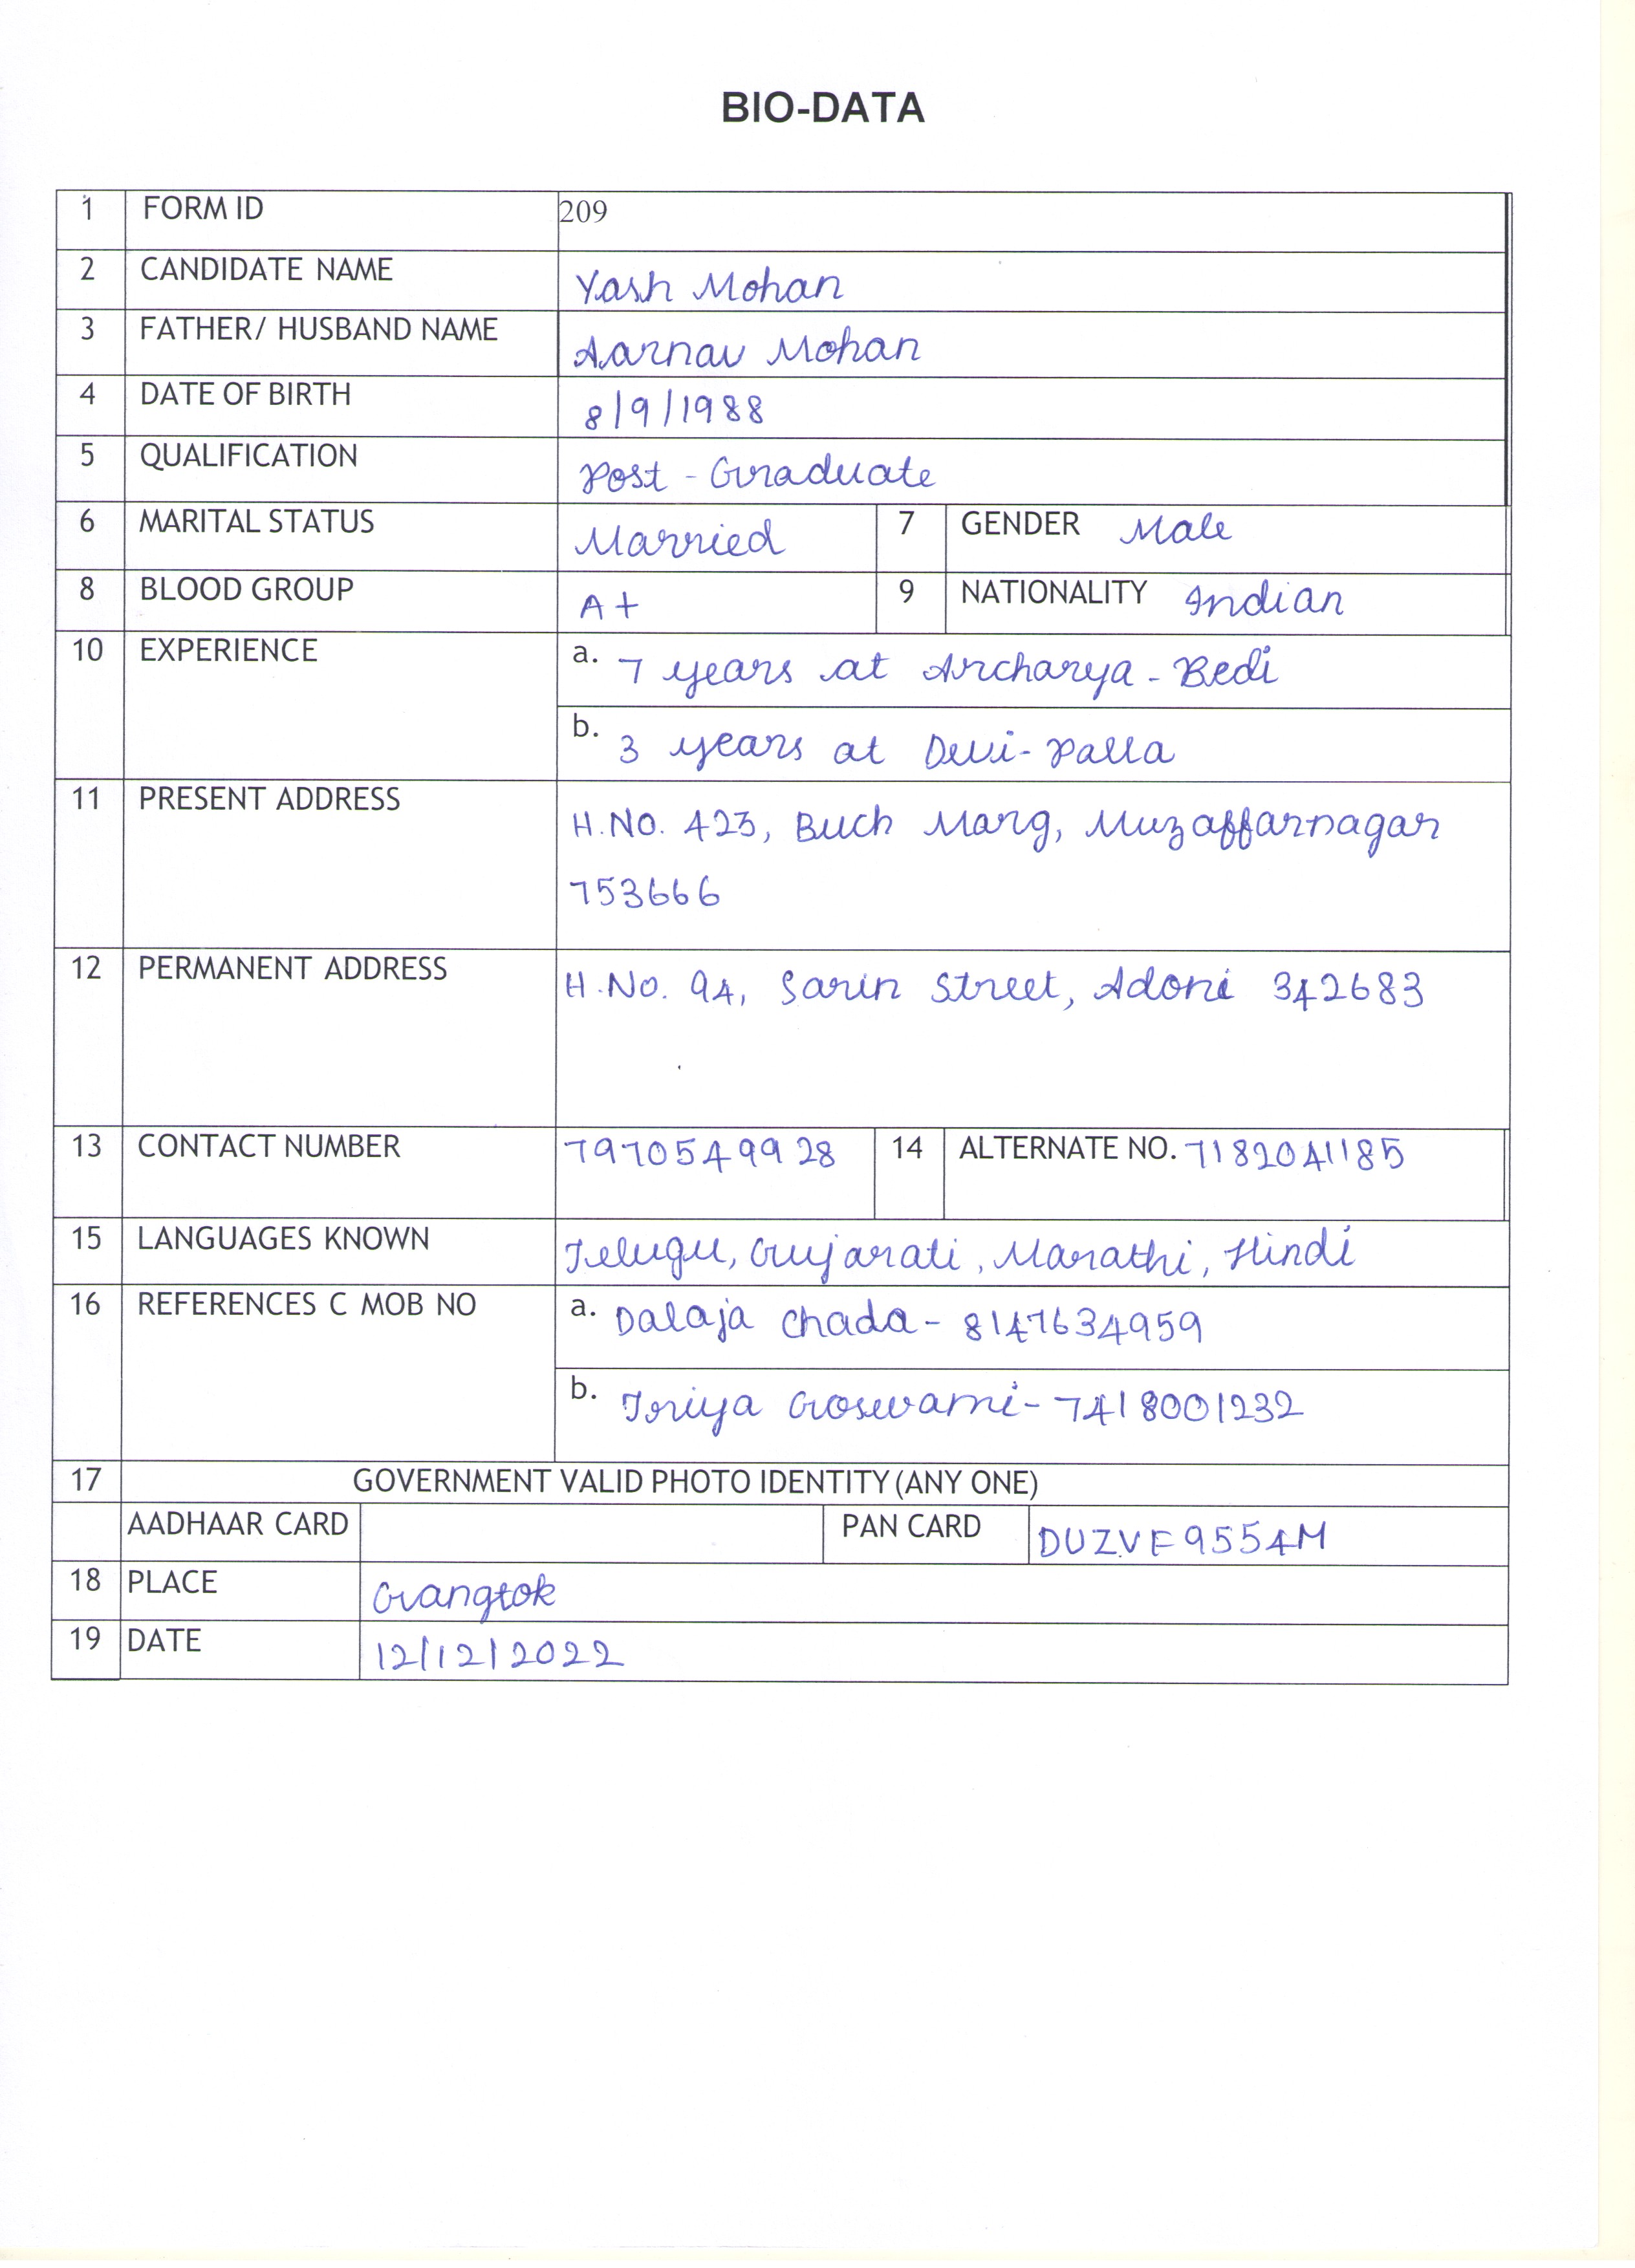 BIO-DATA
1 FORM ID 209
2 CANDIDATE NAME Yash Mohan
3 FATHER/ HUSBAND NAME Aarnav Mohan
4 DATE OF BIRTH 8/9/1988
5 QUALIFICATION Post - Graduate
6 MARITAL STATUS Married 7 GENDER Male
8 BLOOD GROUP A+ 9 NATIONALITY Indian
10 EXPERIENCE a. 7 years at Archarya - Bedi
b. 3 years at Devi - Palla
11 PRESENT ADDRESS H.NO. 423, Buch Marg, Muzaffarnagar
753666
12 PERMANENT ADDRESS H.No. 94, Sarin Street, Adoni 342683
13 CONTACT NUMBER 7970549928 14 ALTERNATE NO. 7182041185
15 LANGUAGES KNOWN Telugu, Gujarati, Marathi, Hindi
16 REFERENCES C MOB NO a. Dalaja Chada - 8147634959
b. Toriya Goswami - 7418001232
17 GOVERNMENT VALID PHOTO IDENTITY (ANY ONE)
AADHAAR CARD PAN CARD DUZVE9554M
18 PLACE Gangtok
19 DATE 12/12/2022